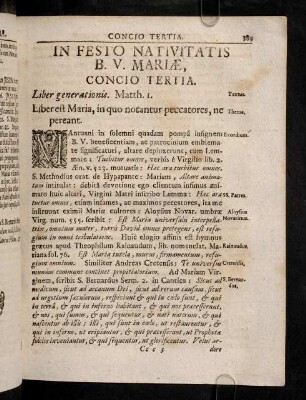 CONCIO TERTIA.
389
IN FESTO NATIVITATIS
B. V. MARIÆ,
CONCIO TERTIA.
Liber generationis. Matth. 1.
Textus.
Liber est Maria, in quo notantur peccatores, ne
Thema.
pereant.
Mantuani in solemni quadam pompâ insignem
Exordium.
B. V. benescentiam, ac patrocinium emblema-
te significaturi, altare depinxerunt, cum Lem-
mate: Tuebitur omnes, verbis è Virgilio lib. 2.
Æn. v. 523. mutuatis: Hæc ara tuebitur omnes.
S. Methodius orat. de Hypapante: Mariam, altare anima-
tum intitulat: debitâ devotione ego clientum infimus ani-
mum huic altari, Virgini Matri inscribo Lemma: Hæc ara
tuebitur omnes, etiam infames, ac maximos peccatores, ita me
SS. Patres.
lubentur eximii Mariæ cultores: Aloysius Novar. umbræ
Aloysius
Virg. num. 555. scribit: Est Maria universalis interpella-
Novarinus.
trix, omnium mater, turris David omnes protegens, est refu-
gium omnium in omni tribulatione. Huic elogio affinis est hymnus
græcus apud Theophilum Rainaudum, lib. nomenclat. Ma-
Rainaudus.
riana fol. 76. Est Maria tutela, murus, firmamentum, refu-
gium omnium. Similiter Andreas Cretensis: Te universa
Cretensis.
omnium commune continet propitiatorium. Ad Mariam Vir-
ginem, scribit S. Bernardus Serm. 2. in Cantica: Sicut ad
S. Bernar-
medium, sicut ad arcanum Dei, sicut ad rerum causam sicut
dus.
ad negotium sæculorum, respiciunt & qui in cælo sunt, & qui
in terrâ, & qui in inferno habitant, & qui nos præcesserunt, &
nos, qui sumus, & qui sequentur, & nati natorum, & qui
nascentur ab illis: illi, qui sunt in cælo, ut restaurentur, & qui
in inferno, ut eripiantur, & qui præcesserunt, ut Prophetæ
fideles inveniantur, & qui sequentur, ut glorificentur.
Ccc 3